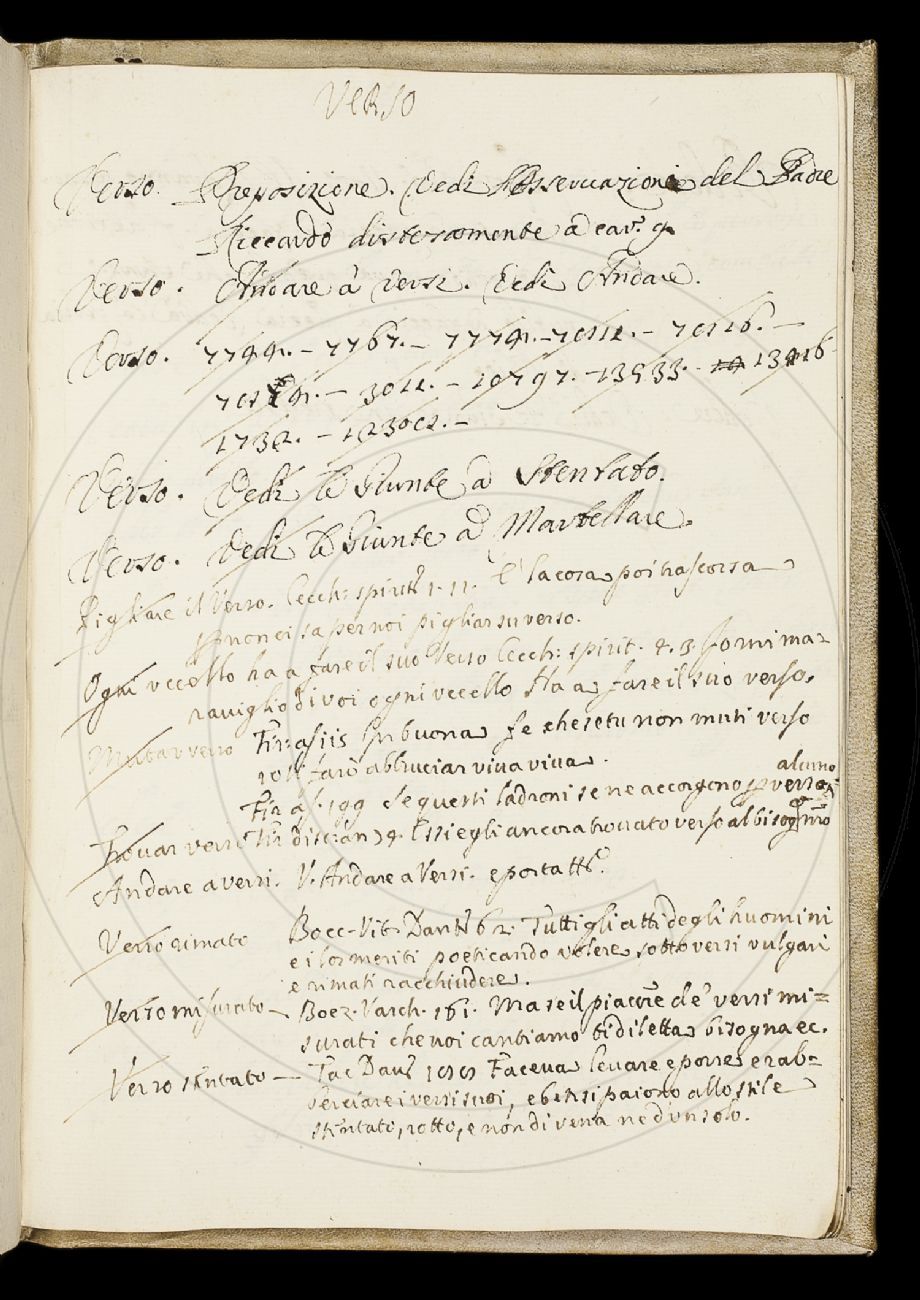 Verso
Verso. Preposizione. Vedi Osservazione del Padre
Riccardo distesamente a car. 9.
Verso. Andare à Versi. Vedi Andare.
Verso.
1732.
Verso. Vedi le Giunte a Stentato.
Verso. Vedi le Giunte a Martellare.
Pigliare il Verso. Cecch: spirit. 1. 11. E' la cosa poi trascorsa
non ci saper noi pigliar su verso.
Ogni vccello ha a fare il suo Verso Cecch: spirit. 4. 3. Io mi ma=
rauiglio di voi ogni vccello Ha a fare il suo verso.
Mutar verso Fir: as. 115 In buona fe che se tu non muti verso
io ti farò abbruciar viua viua.
alcuno
Fir. as. 199 Se questi ladroni se ne accorgono verso
Trouar verso Fir. discian 79. Essi egli ancora trouato verso al bisogno nro
Andare a versi. V. Andare a Versi. e porta tt.º
Verso rimato Bocc. Vit. Dant. 62. Tutti gli atti degli huomini
e i lor meriti poeticando volere sotto versi vulgari
e rimati racchiudere.
Verso misurato Boez. Varch. 161. Ma se il piacere de' versi mi=
surati che noi cantiamo ti diletta bisogna ec.
Verso stentato — Tac Dau. Faceua leuare e porre e rab=
berciare i versi suoi, e ben si paiono allo stile
stentato, rotto, e non di vena ne d'un solo.